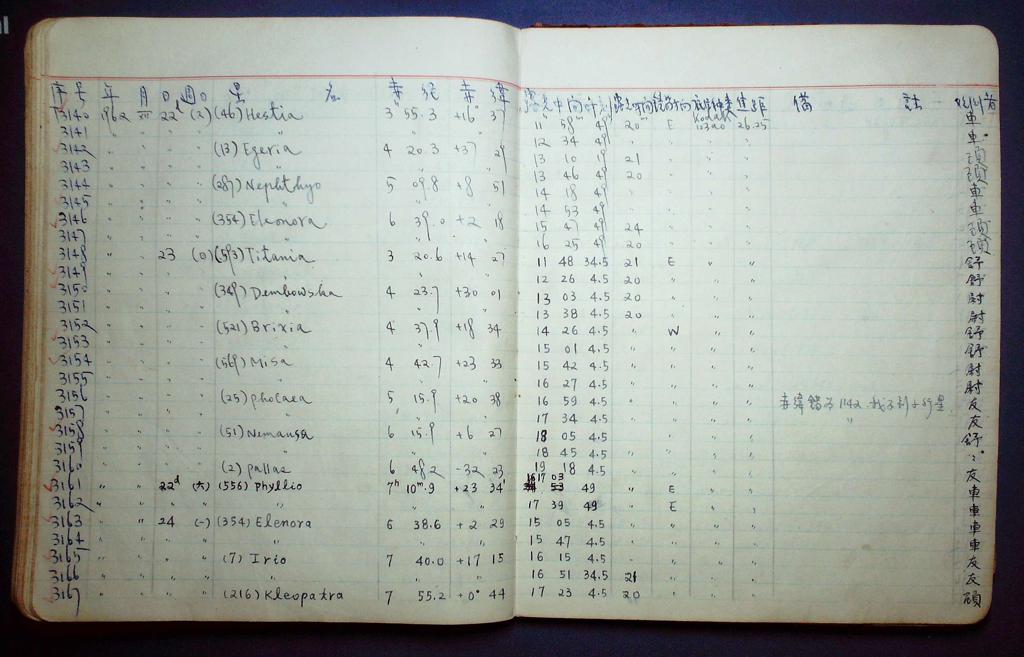 序号 年 月 日 週日 星 名 赤 经 赤 纬 露光中间时刻 露光时间 镜筒方向 底片种类 焦距 備 註 观测者
3140 1962 XII 22d (六) (46) Hestia 3h 55.3 +16° 37' 11h 58m 49s 20m E Kodak 103aO 26.25 車
12 34 49 車
3142 (13) Egeria 4 20.3 +37 29 13 10 19 21
3143 13 46 49 20
3144 (287) Nephthyo 5 09.8 +8 51 14 18 49 車
3145 14 53 49 車
3146 (354) Eleonora 6 39.0 +2 18 15 47 49 24
3147 16 25 49 20
3148 23 (日) (593) Titania 3 20.6 +14 27 11 48 34.5 21 E 舒
3149 12 26 4.5 20 舒
3150 (349) Dembowska 4 23.7 +30 01 13 03 4.5 20 尉
3151 13 38 4.5 20 尉
3152 (521) Brixia 4 37.9 +18 34 14 26 4.5 W 舒
3153 15 01 4.5 舒
3154 (569) Misa 4 42.7 +23 33 15 42 4.5 尉
3155 16 27 4.5 尉
3156 (25) phocaea 5 15.9 +20 38 16 59 4.5 赤纬错了 1142 找不到小行星 友
3157 17 34 4.5 友
3158 (51) Nemausa 6 15.9 +6 27 18 05 4.5 舒
3159 18 45 4.5
3160 (2) pallas 6 48.2 -32 23 19 18 4.5 友
3161 22d (六) (556) Phyllio 7h 10m.9 +23 34' 17 03 49 E 車
3162 17 39 49 E 車
3163 24 (一) (354) Elenora 6 38.6 +2 29 15 05 4.5 車
3164 15 47 4.5 車
3165 (7) Irio 7 40.0 +17 15 16 15 4.5 友
3166 16 51 34.5 21 友
3167 (216) Kleopatra 7 55.2 +0° 44 17 23 4.5 20